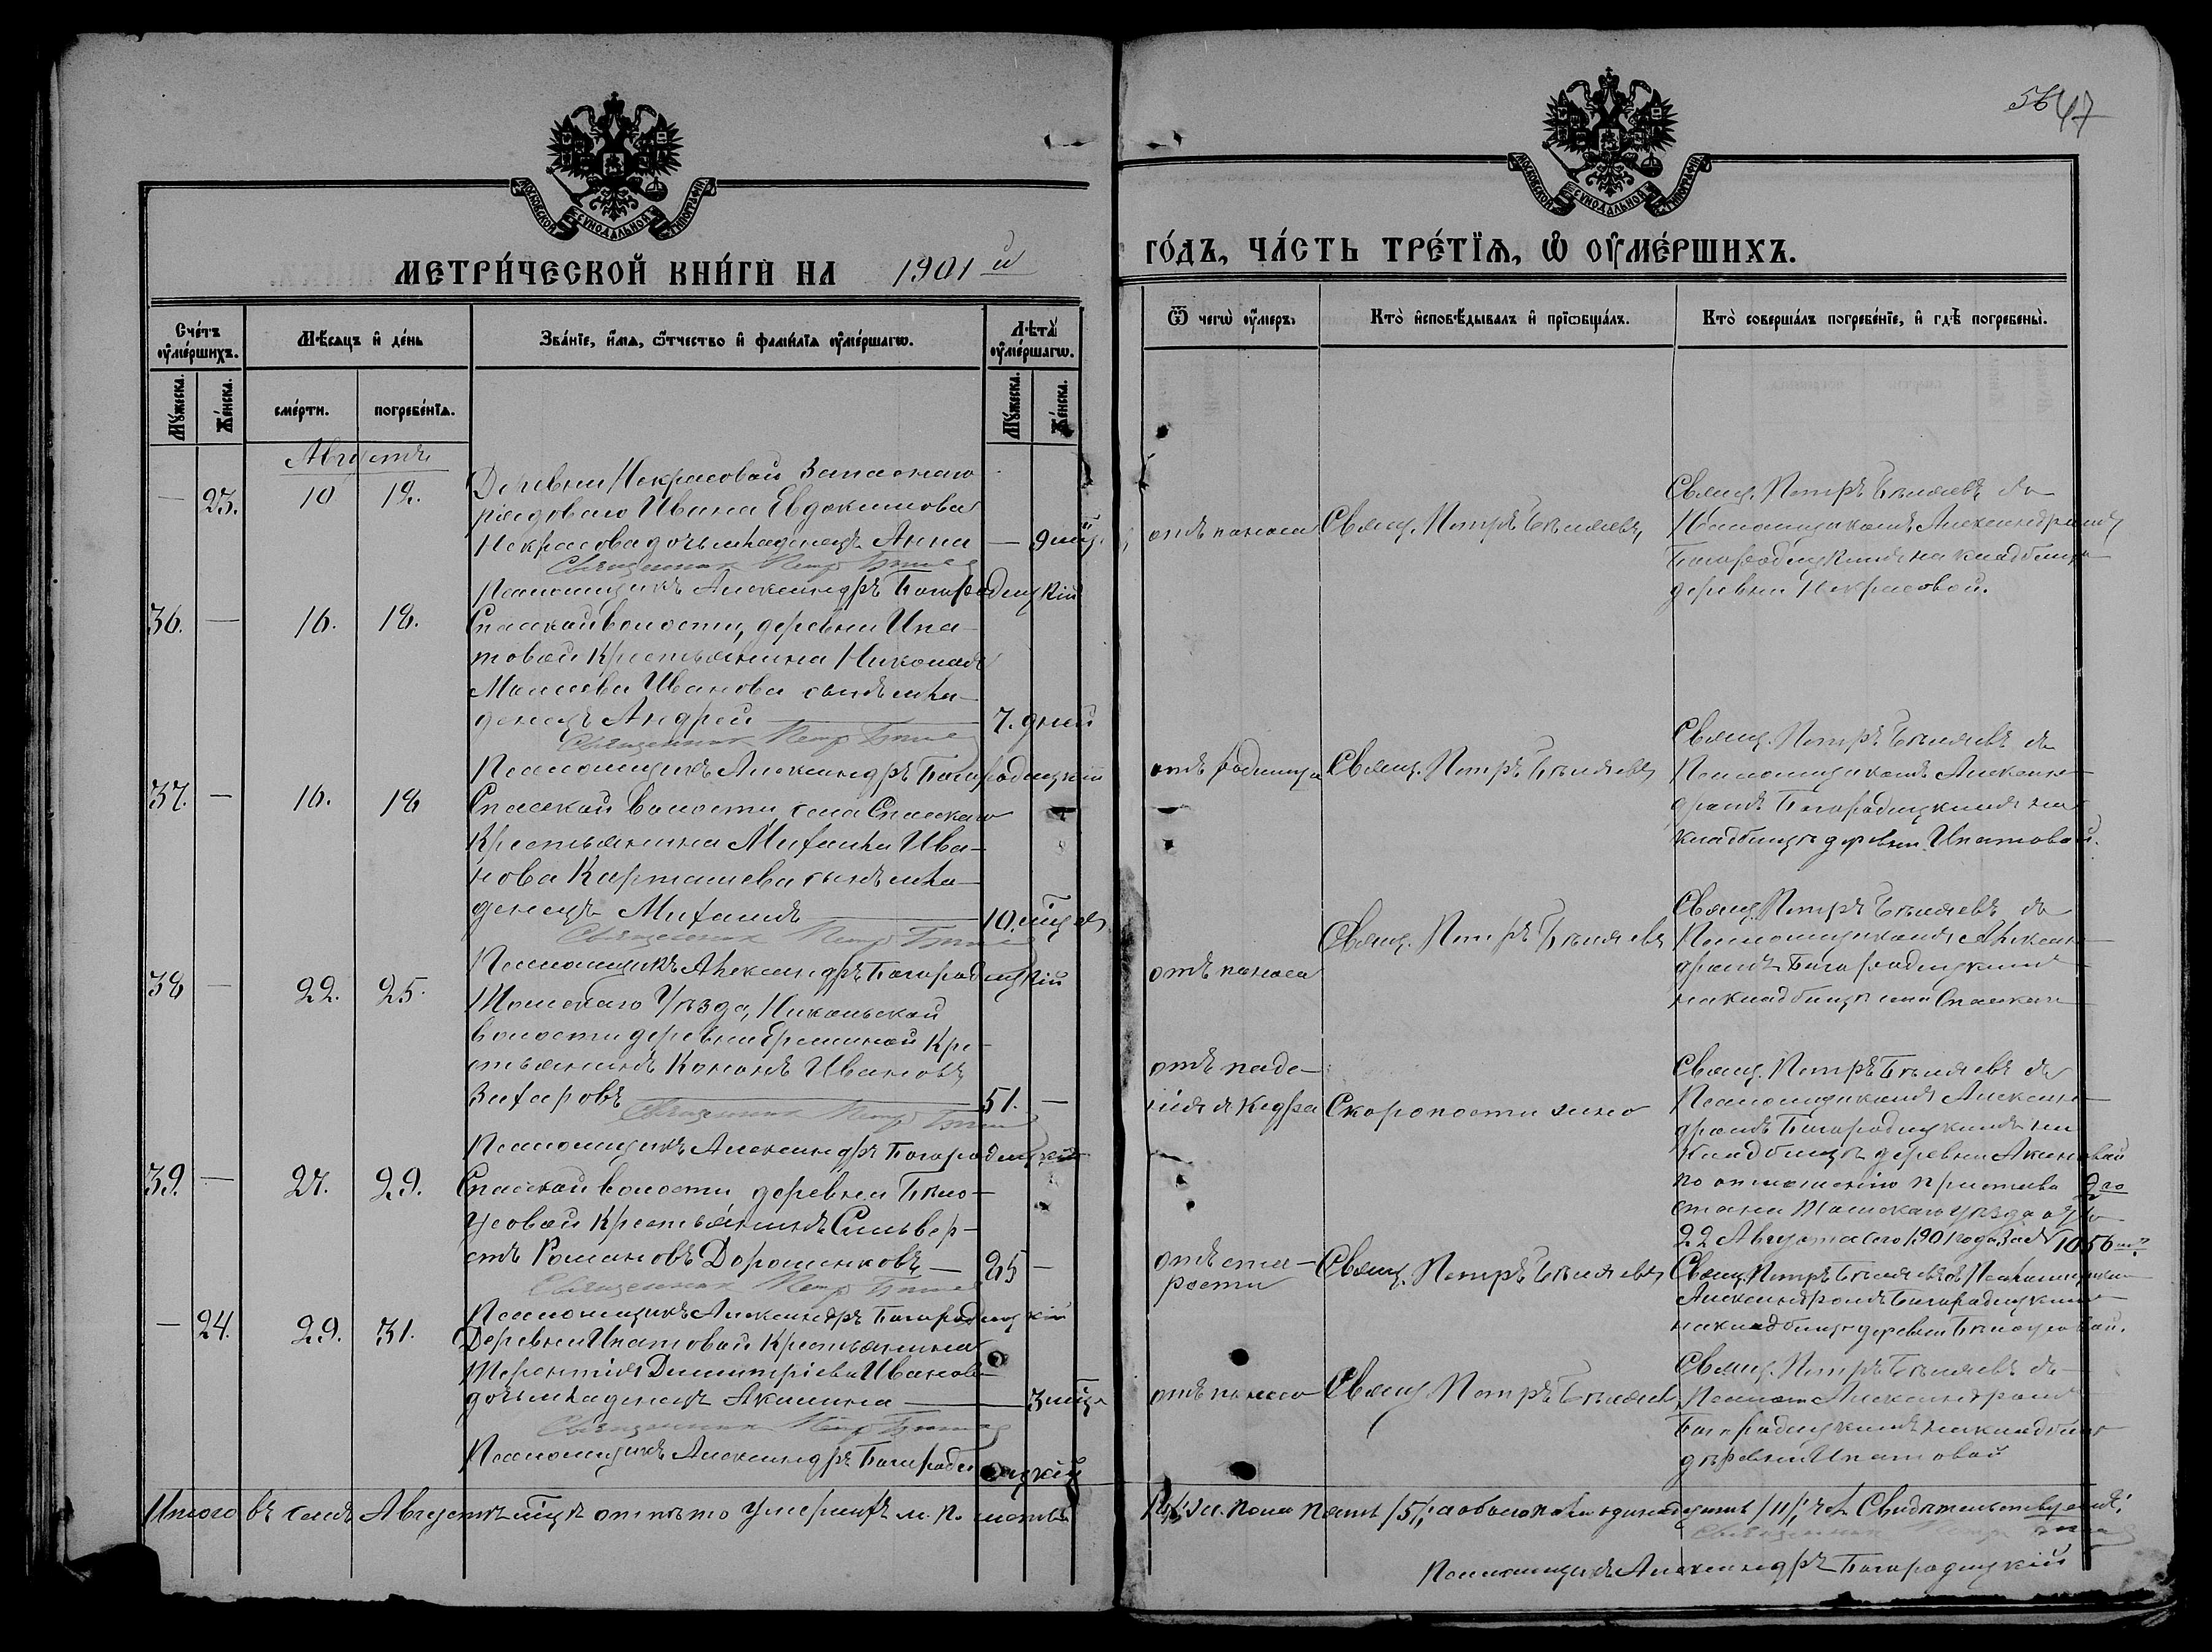 56 47
МОСКОВСКОЙ СУНОДАЛЬНОЙ ТИПОГРАФІИ
МОСКОВСКОЙ СУНОДАЛЬНОЙ ТИПОГРАФІИ
МЕТРИ́ЧЕСКОЙ КНИ́ГИ НА 1901 й
ГО́ДЪ, ЧА́СТЬ ТРЕ́ТЇѦ, Ѡ҆ ОУ҆МЕ́РШИХЪ.
Сче́тъ оу҆ме́ршихъ.
Мѣ́сяцъ и҆ де́нь
Зва́нїе, и҆́мѧ, ѻ҆́тчество и҆ фами́лїѧ оу҆ме́ршагѡ.
Лѣ́та оу҆ме́ршагѡ.
Ѿ чегѡ̀ оу҆́меръ.
Кто̀ и҆сповѣ́дывалъ и҆ прїѡбща́лъ.
Кто̀ соверша́лъ погребе́нїе, и҆ гдѣ̀ погребены̀.
Мꙋ́жеска.
Же́нска.
сме́рти.
погребе́нїѧ.
Мꙋ́жеска.
Же́нска.
Августъ
— 23. 10 12.
Деревни Некрасовой Запаснаго
рядоваго Ивана Евдокимова
Некрасова дочь младенецъ Анна — 9 мѣс.
Священникъ Петръ Бѣляевъ
Псаломщикъ Александръ Богородицкій
отъ поноса
Свящ. Петръ Бѣляевъ
Свящ. Петръ Бѣляевъ съ
Псаломщикомъ Александромъ
Богородицкимъ на кладбищѣ
деревни Некрасовой.
36. — 16. 18.
Спасской волости, деревни Ипа-
товой Крестьянина Николая
Моисеева Иванова сынъ мла-
денецъ Андрей — 7. дней
Священникъ Петръ Бѣляевъ
Псаломщикъ Александръ Богородицкій
отъ родимца
Свящ. Петръ Бѣляевъ
Свящ. Петръ Бѣляевъ съ
Псаломщикомъ Алексан-
дромъ Богородицкимъ на
кладбищѣ деревни Ипатовой.
37. — 16. 18
Спасской волости, села Спаскаго
Крестьянина Михаила Ива-
нова Карташева сынъ мла-
денецъ Михаилъ — 10. мѣс.
Священникъ Петръ Бѣляевъ
Псаломщикъ Александръ Богородицкій
отъ поноса
Свящ. Петръ Бѣляевъ
Свящ. Петръ Бѣляевъ съ
Псаломщикомъ Алексан-
дромъ Богородицкимъ
на кладбищѣ села Спаскаго
38 — 22. 25.
Томскаго Уѣзда, Никольской
волости деревни Ереминой Кре-
стьянинъ Кононъ Ивановъ
Захаровъ — 51. —
Священникъ Петръ Бѣляевъ
Псаломщикъ Александръ Богородицкій
отъ паде-
нія съ кедра
Скоропостижно
Свящ. Петръ Бѣляевъ съ
Псаломщикомъ Алексан-
дромъ Богородицкимъ на
кладбищѣ деревни Акинской
по отношенію пристава 2го
стана Томскаго уѣзда отъ
22 Августа сего 1901 года за № 1056мъ.
39. — 27. 29.
Спасской волости деревни Бѣло-
усовой Крестьянинъ Сильвер-
стъ Романовъ Дорошенковъ — 85 —
Священникъ Петръ Бѣляевъ
Псаломщикъ Александръ Богородицкій
отъ ста-
рости
Свящ. Петръ Бѣляевъ
Свящ. Петръ Бѣляевъ съ Псаломщикомъ
Александромъ Богородицкимъ
на кладбищѣ деревни Бѣлоусовой.
— 24. 29. 31.
Деревни Ипатовой Крестьянина
Терентія Димитріева Иванова
дочь младенецъ Акилина — 3 мѣс.
Священникъ Петръ Бѣляевъ
Псаломщикъ Александръ Богородицкій
отъ поноса
Свящ. Петръ Бѣляевъ
Свящ. Петръ Бѣляевъ съ
Псалом. Александромъ
Богородицкимъ на кладбищѣ
деревни Ипатовой
Итого въ семъ Августѣ мѣс. отпѣто умершихъ м. п. шесть /6/; ж. пола пять /5/, а обоего пола одинадцать /11/; въ чемъ Свидѣтельствуемъ:
Священникъ Петръ Бѣляевъ
Псаломщикъ Александръ Богородицкій